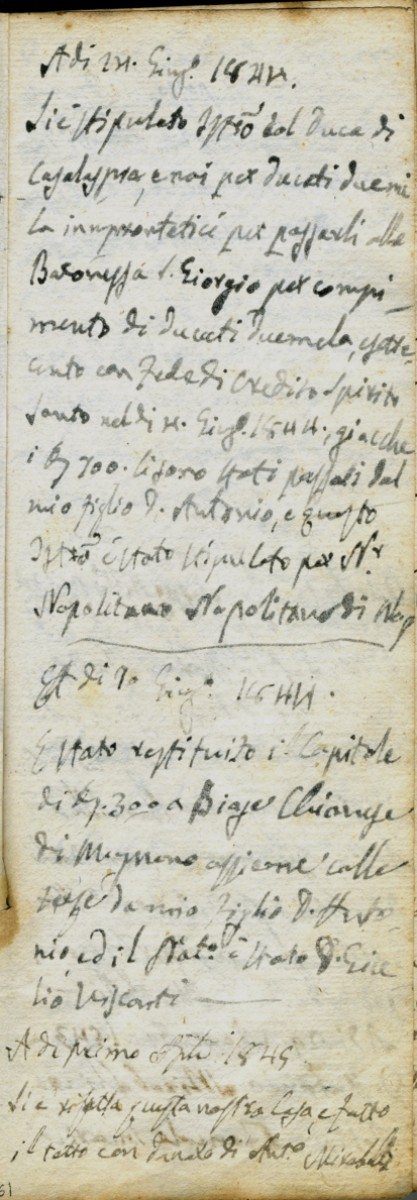 A di 24. Giug.º 1844.
Si è stipulato Istrō dal Duca di
Casalaspra, e noi per Ducati duemi
la improntatici per passarli alla
Baronessa S. Giorgio per compi-
mento di Ducati duemila, e sette-
cento con Fede di Credito Spirito
Santo nel dì 4. Giug. 1844., giacche
i D. 700. li sono stati passati dal
mio figlio D. Antonio, e questo
Istrō è stato stipulato per N.r
Napolitano Napolitano di Nap
di 30 Giug.º 1844.
E stato restituito il Capitale
di D. 300 a Biase Chianese
di Mugnano assieme colle
terze da mio figlio D. Anto
nio, ed il Not.º è stato D.
lio Visconti
A di primo 1845
Si è rifatta questa nostra Casa, e fatto
il tetto con di Ant.º Mirabelli